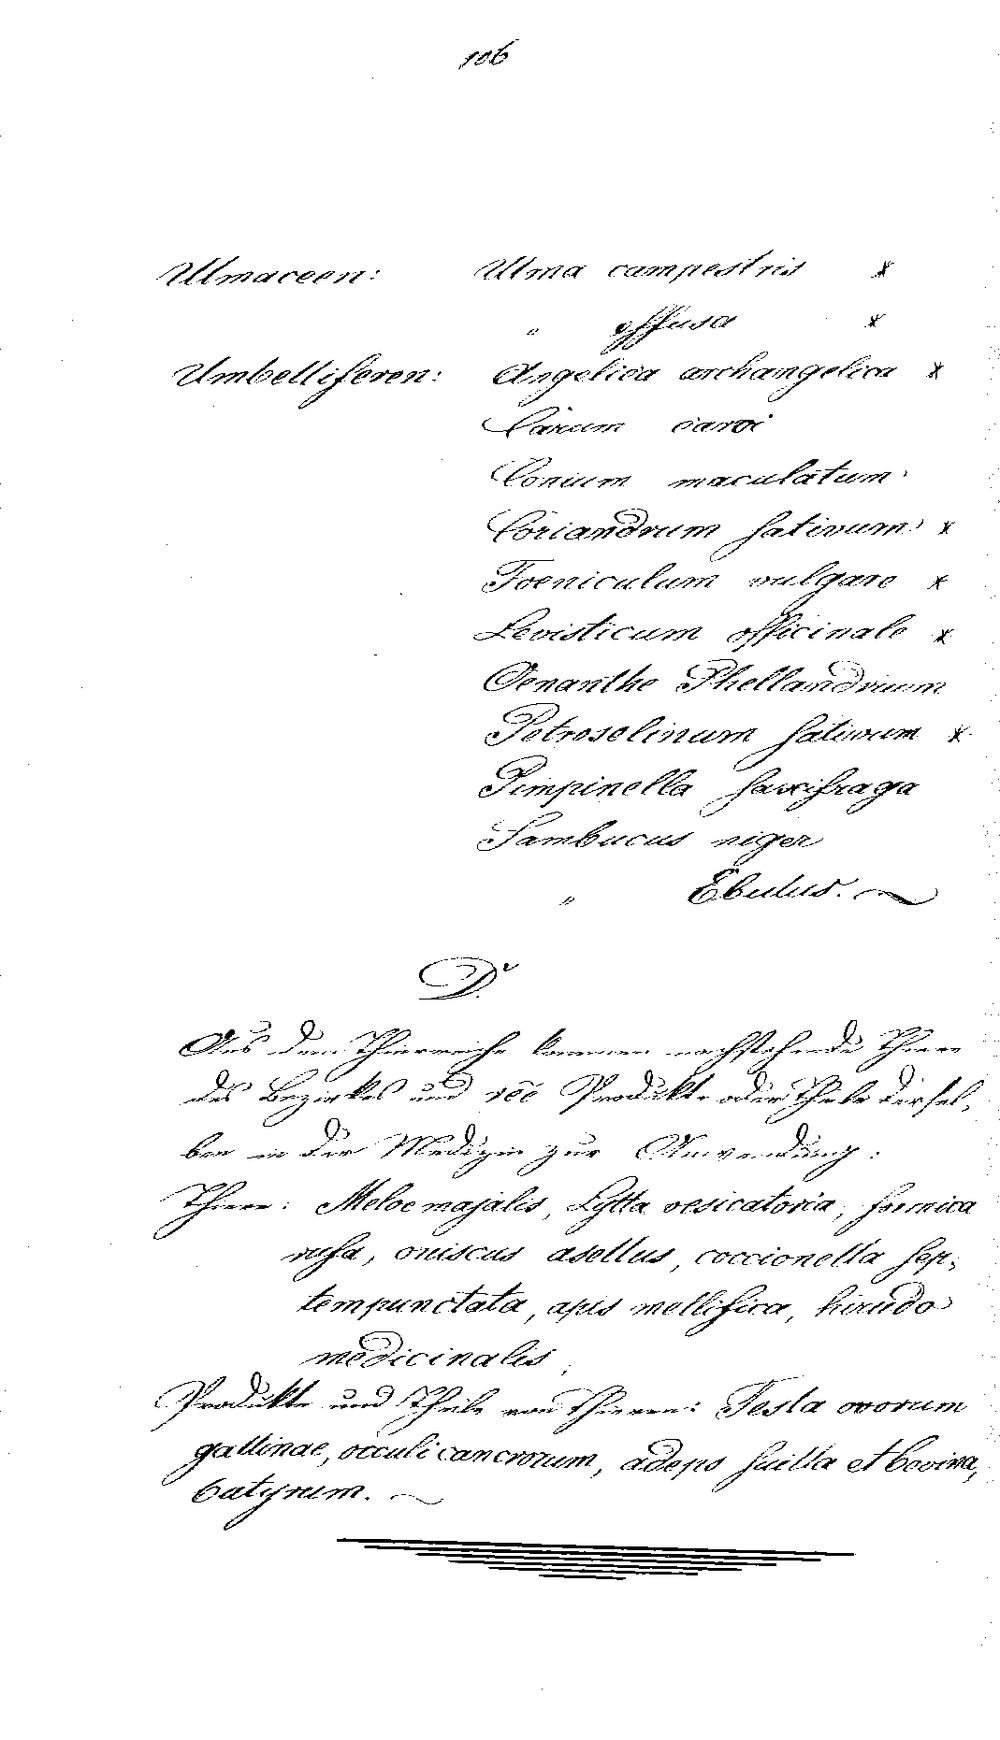 106
Ulmaceen: Ulma campestris x
" effusa x
Umbelliferen: Angelica archangelica x
Carum carvi
Conium maculatum
Coriandrum sativum x
Foeniculum vulgare x
Levisticum officinale x
Oenanthe Phellandrium
Petroselinum sativum x
Pimpinella saxifraga
Sambucus niger
" Ebulus.
D.
Aus dem Thierreiche kommen nachstehende Thiere
des Bezirkes und Produkte oder Theile dersel-
ben in der Medizin zur Anwendung:
Thiere: Meloe majalis, Lytta vesicatoria, formica
rufa, oniscus asellus, coccionella sep-
tempunctata, apis mellifica, hirudo
medicinalis
Produkte und Theile von Thieren: Testa ovorum
gallinae, occuli cancrorum, adeps suilla et bovina,
batyrum.